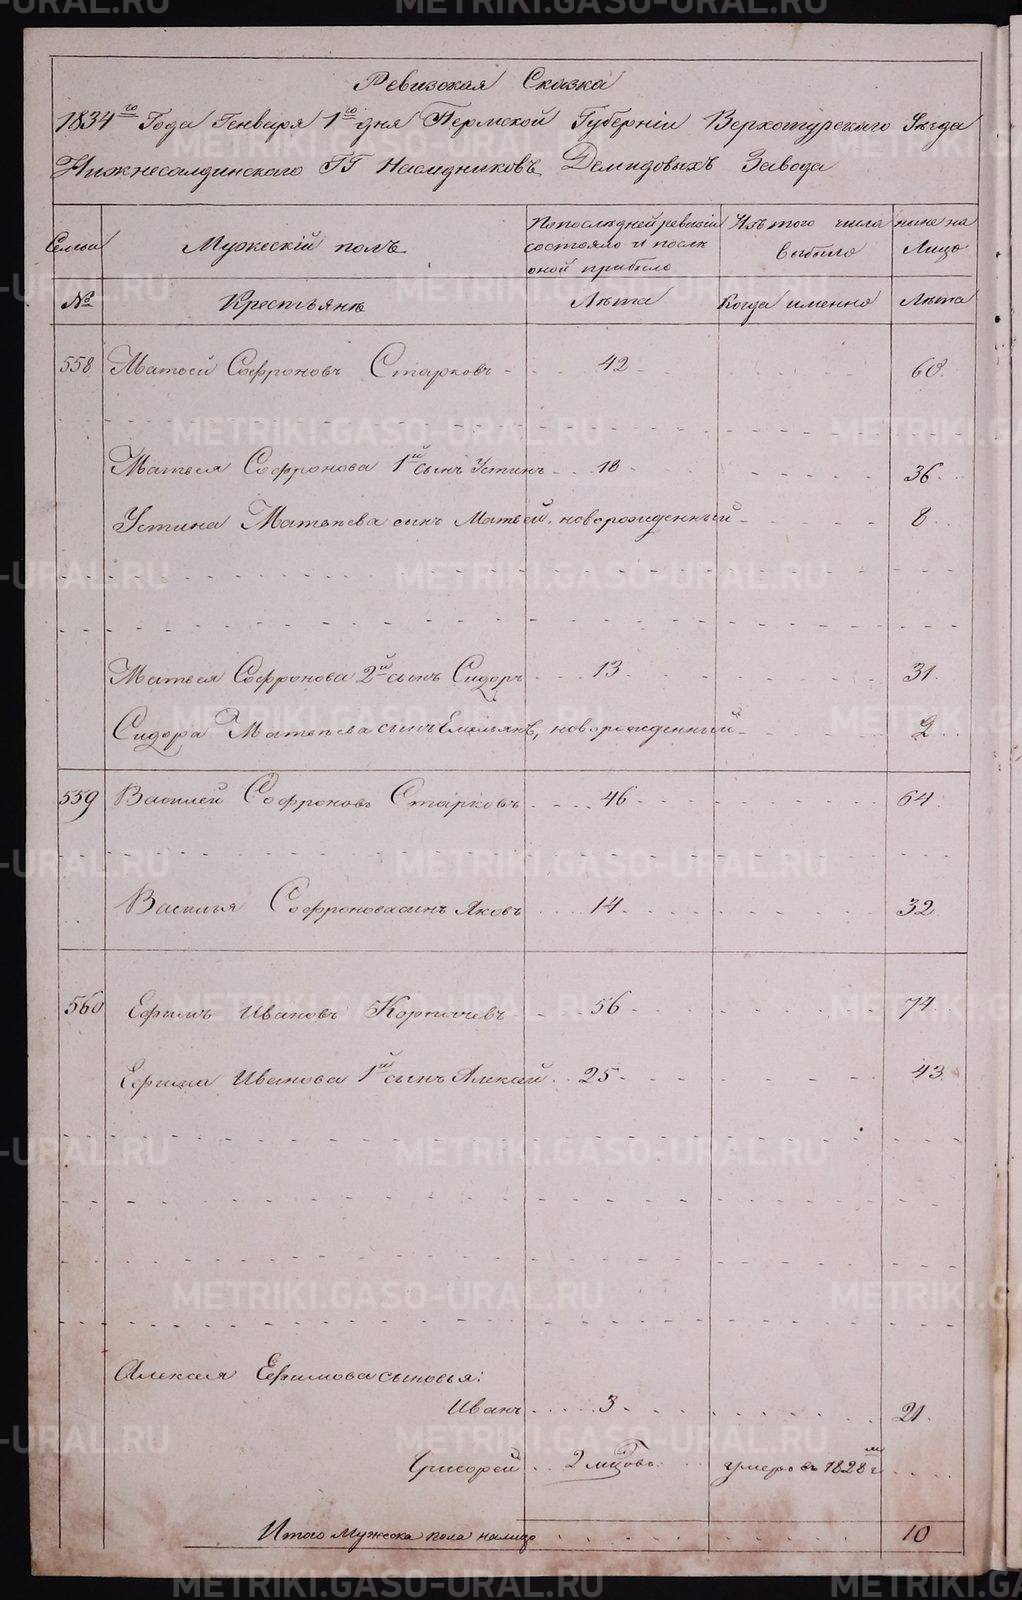 Ревизская Сказка
1834го Года Генваря 1го дня Пермской Губернiи Верхотурскаго Уезда
Нижнесалдинскаго ГГ Наследниковъ Демидовыхъ Завода
Семьи
Мужескiй полъ
По последней ревизiи состояло и после оной прибыло
Изъ того числа выбыло
ныне на Лицо
№
Крестьяне
Лета
Когда именно
Лета
558 Матвей Софроновъ Старковъ 42 60
Матвея Софронова 1й сынъ Устинъ 18 36
Устина Матвеева сынъ Матвей, новорожденный 8
Матвея Софронова 2й сынъ Сидоръ 13 31
Сидора Матвеева сынъ Емельянъ, новорожденный 2
559 Василей Софроновъ Старковъ 46 64
Василья Софронова сынъ Яковъ 14 32
560 Ефимъ Ивановъ 56 74
Ефима Иванова 1й сынъ Алексей 25 43
Алексея Ефимова сыновья:
Иванъ 3 21
Григорей 2 мцовъ умеръ въ 1828м г
Итого Мужеска пола налицо 10
METRIKI.GASO-URAL.RU